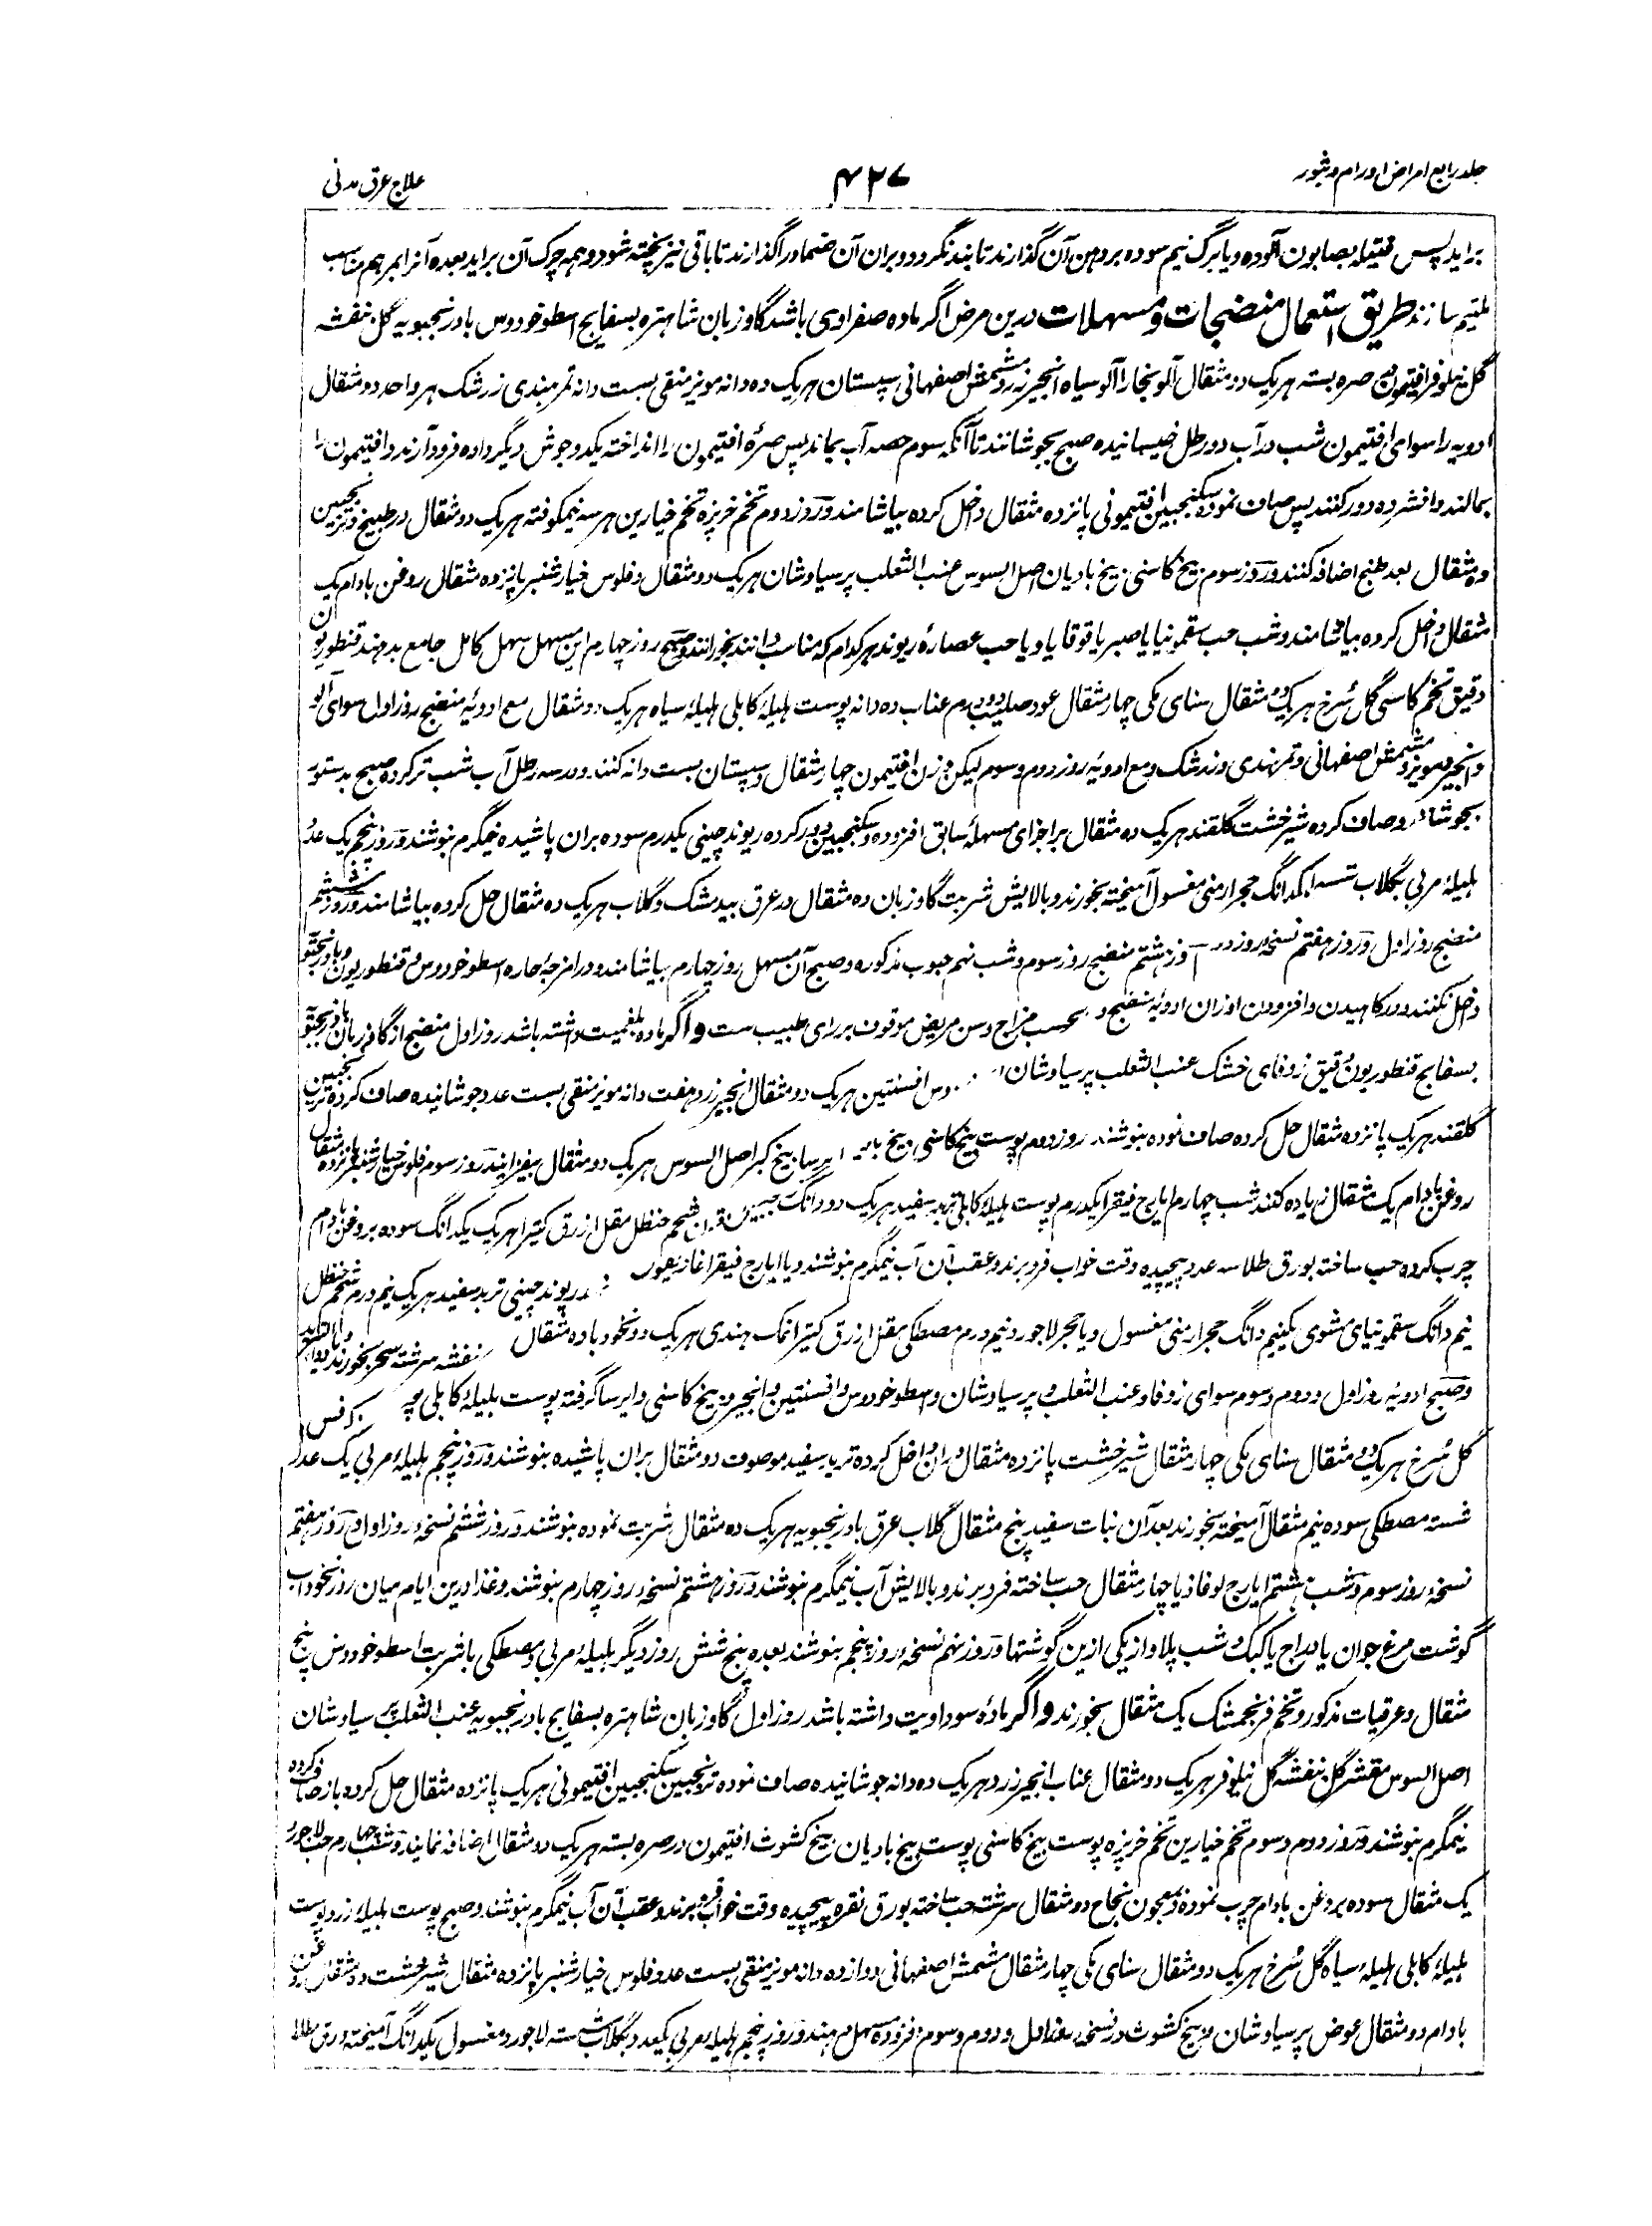 جلد رابع امراض اورام و بثور
۴۲۷
علاج عرق مدنی
براید پس فتیله بصابون آلوده و یا برگ نیم سوده بر دهن آن گذارند تا بند نگردد و بران آن ضماد را گذارند تا باقی نیز پخته شود و همه چرک آن براید بعده آنرا بمرهم مناسب
ملتیم سازند طریق استعمال منضجات و مسهلات درین مرض اگر ماده صفراوی باشد گاوزبان شاهتره بسفایج اسطوخودوس بادرنجبویه گل بنفشه
گل نیلوفر افتیمون در صره بسته هر یک دو مثقال آلو بخارا آلو سیاه انجیر زرد مشمش اصفهانی سپستان هر یک ده دانه مویز منقی بست دانه تمر هندی زرشک هر واحد دو مثقال
ادویه را سوای افتیمون شب در آب دو رطل خیسانیده صبح بجوشانند تا آنکه سوم حصه آب بماند پس صرۀ افتیمون را انداخته یکدو جوش دیگر داده فرود آرند و افتیمون را
بمالند و افشرده دور کنند پس صاف نموده سکنجبین افتیمونی پانزده مثقال داخل کرده بیاشامند و روز دوم تخم خرپزه تخم خیارین هر سه نیمکوفته هر یک دو مثقال در طبیخ و ترنجبین
ده مثقال بعد طبخ اضافه کنند و روز سوم بیخ کاسنی بیخ بادیان اصل السوس عنب الثعلب پرسیاوشان هر یک دو مثقال و فلوس خیارشنبر پانزده مثقال روغن بادام یک
مثقال داخل کرده بیاشامند و شب حب سقمونیا یا صبر یا قوقایا و یا حب عصارۀ ریوند هر کدام که مناسب دانند بخورانند و صبح روز چهارم این مسهل سهل کامل جامع بدهند قنطوریون
دقیق تخم کاسنی گل سرخ هر یک دو مثقال سنای مکی چهار مثقال عود صلیب دو درم عناب ده دانه پوست هلیلۀ کابلی هلیلۀ سیاه هر یک دو مثقال مع ادویۀ منضج روز اول سوای آلو
و انجیر و مویز و مشمش اصفهانی و تمر هندی و زرشک و مع ادویۀ روز دوم و سوم لیکن وزن افتیمون چهار مثقال و سپستان بست دانه کنند و در سه رطل آب شب تر کرده صبح بدستور
بجوشانند و صاف کرده شیرخشت گلقند هر یک ده مثقال بر اجزای مسهلۀ سابق افزوده و سکنجبین دور کرده ریوند چینی یکدرم سوده بران پاشیده نیمگرم بنوشند و روز پنجم یک عدد
هلیلۀ مربی بگلاب شسته یکدانگ حجر ارمنی مغسول آمیخته بخورند و بالایش شربت گاوزبان ده مثقال در عرق بیدمشک و گلاب هر یک ده مثقال حل کرده بیاشامند و روز ششم
منضج روز اول و روز هفتم نسخۀ روز دوم روز هشتم منضج روز سوم و شب نهم حبوب مذکوره و صبح آن مسهل روز چهارم بیاشامند و در امزجۀ حاره اسطوخودوس و قنطوریون و بادرنجبویه
داخل نکنند و در کاهیدن و افزودن اوزان ادویۀ منضج و بحسب مزاج و سن مریض موقوف بر رای طبیب ست و اگر ماده بلغمیت داشته باشد روز اول منضج از گاوزبان بادرنجبویه
بسفایج قنطوریون دقیق زوفای خشک عنب الثعلب پرسیاوشان افسنتین هر یک دو مثقال انجیر زرد هفت دانه مویز منقی بست عدد جوشانیده صاف کرده ترنجبین
گلقند هر یک پانزده مثقال حل کرده صاف نموده بنوشند روز دوم پوست بیخ کاسنی بیخ ایرسا بیخ کبر اصل السوس هر یک دو مثقال بیفزایند روز سوم فلوس خیارشنبر پانزده مثقال
روغن بادام یک مثقال زیاده کنند شب چهارم ایارج فیقرا یکدرم پوست هلیلۀ کابلی تربد سفید هر یک دو دانگ شحم حنظل مقل ازرق کتیرا هر یک یکدانگ سوده بروغن بادام
چرب کرده حب ساخته بورق طلا سه عدد پیچیده وقت خواب فرو برند و عقب آن آب نیمگرم بنوشند و یا ایارج فیقرا غاریقون ریوند چینی تربد سفید هر یک نیم درم شحم حنظل
نیم دانگ سقمونیای مشوی یکنیم دانگ حجر ارمنی مغسول و یا حجر لاجورد نیم درم مصطکی مقل ازرق کتیرا نمک هندی هر یک دو نخود باده مثقال بنفشه سرشته سحر بخورند
و صبح ادویه روز اول و دوم و سوم سوای زوفا و عنب الثعلب و پرسیاوشان و اسطوخودوس و افسنتین و انجیر و بیخ کاسنی و ایرسا گرفته پوست هلیلۀ کابلی کرفس
گل سرخ هر یک دو مثقال سنای مکی چهار مثقال شیرخشت پانزده مثقال دران داخل کرده تربد سفید موصوف دو مثقال بران پاشیده بنوشند و روز پنجم هلیلۀ مربی یک عدد
شسته مصطکی سوده نیم مثقال آمیخته بخورند بعد آن نبات سفید پنج مثقال گلاب عرق بادرنجبویه هر یک ده مثقال شربت نموده بنوشند و روز ششم نسخۀ روز اول و روز هفتم
نسخۀ روز سوم و شب هشتم ایارج لوغاذیا چهار مثقال حب ساخته فرو برند و بالایش آب نیمگرم بنوشند و روز هشتم نسخۀ روز چهارم بنوشند و غذا درین ایام میان روز نخوداب
گوشت مرغ جوان یا دراج یا کبک و شب پلاو از یکی ازین گوشتها و روز نهم نسخۀ روز پنجم بنوشند بعده پنج شش روز دیگر هلیلۀ مربی و مصطکی با شربت اسطوخودوس پنج
مثقال و عرقیات مذکور و تخم فرنجمشک یک مثقال بخورند و اگر مادۀ سوداویت داشته باشد روز اول گاوزبان شاهتره بسفایج بادرنجبویه عنب الثعلب پرسیاوشان
اصل السوس مقشر گل بنفشه گل نیلوفر هر یک دو مثقال عناب انجیر زرد هر یک ده دانه جوشانیده صاف نموده ترنجبین سکنجبین افتیمونی هر یک پانزده مثقال حل کرده باز صاف کرده
نیمگرم بنوشند و روز دوم و سوم تخم خیارین تخم خرپزه پوست بیخ کاسنی پوست بیخ بادیان بیخ کشوث افتیمون در صره بسته هر یک دو مثقال اضافه نمایند و شب چهارم حب لاجورد
یک مثقال سوده بروغن بادام چرب نموده و بمعجون نجاح دو مثقال سرشته حب ساخته بورق نقره پیچیده وقت خواب فرو برند و عقب آن آب نیمگرم بنوشند و صبح پوست هلیلۀ زرد پوست
هلیلۀ کابلی هلیلۀ سیاه گل سرخ هر یک دو مثقال سنای مکی چهار مثقال مشمش اصفهانی دوازده دانه مویز منقی بست عدد فلوس خیارشنبر پانزده مثقال شیرخشت ده مثقال روغن
بادام دو مثقال عوض پرسیاوشان و بیخ کشوث در نسخۀ روز اول و دوم و سوم افزوده مسهل دهند و روز پنجم هلیلۀ مربی یکعدد بگلاب شسته لاجورد مغسول یکدانگ آمیخته ورق طلا